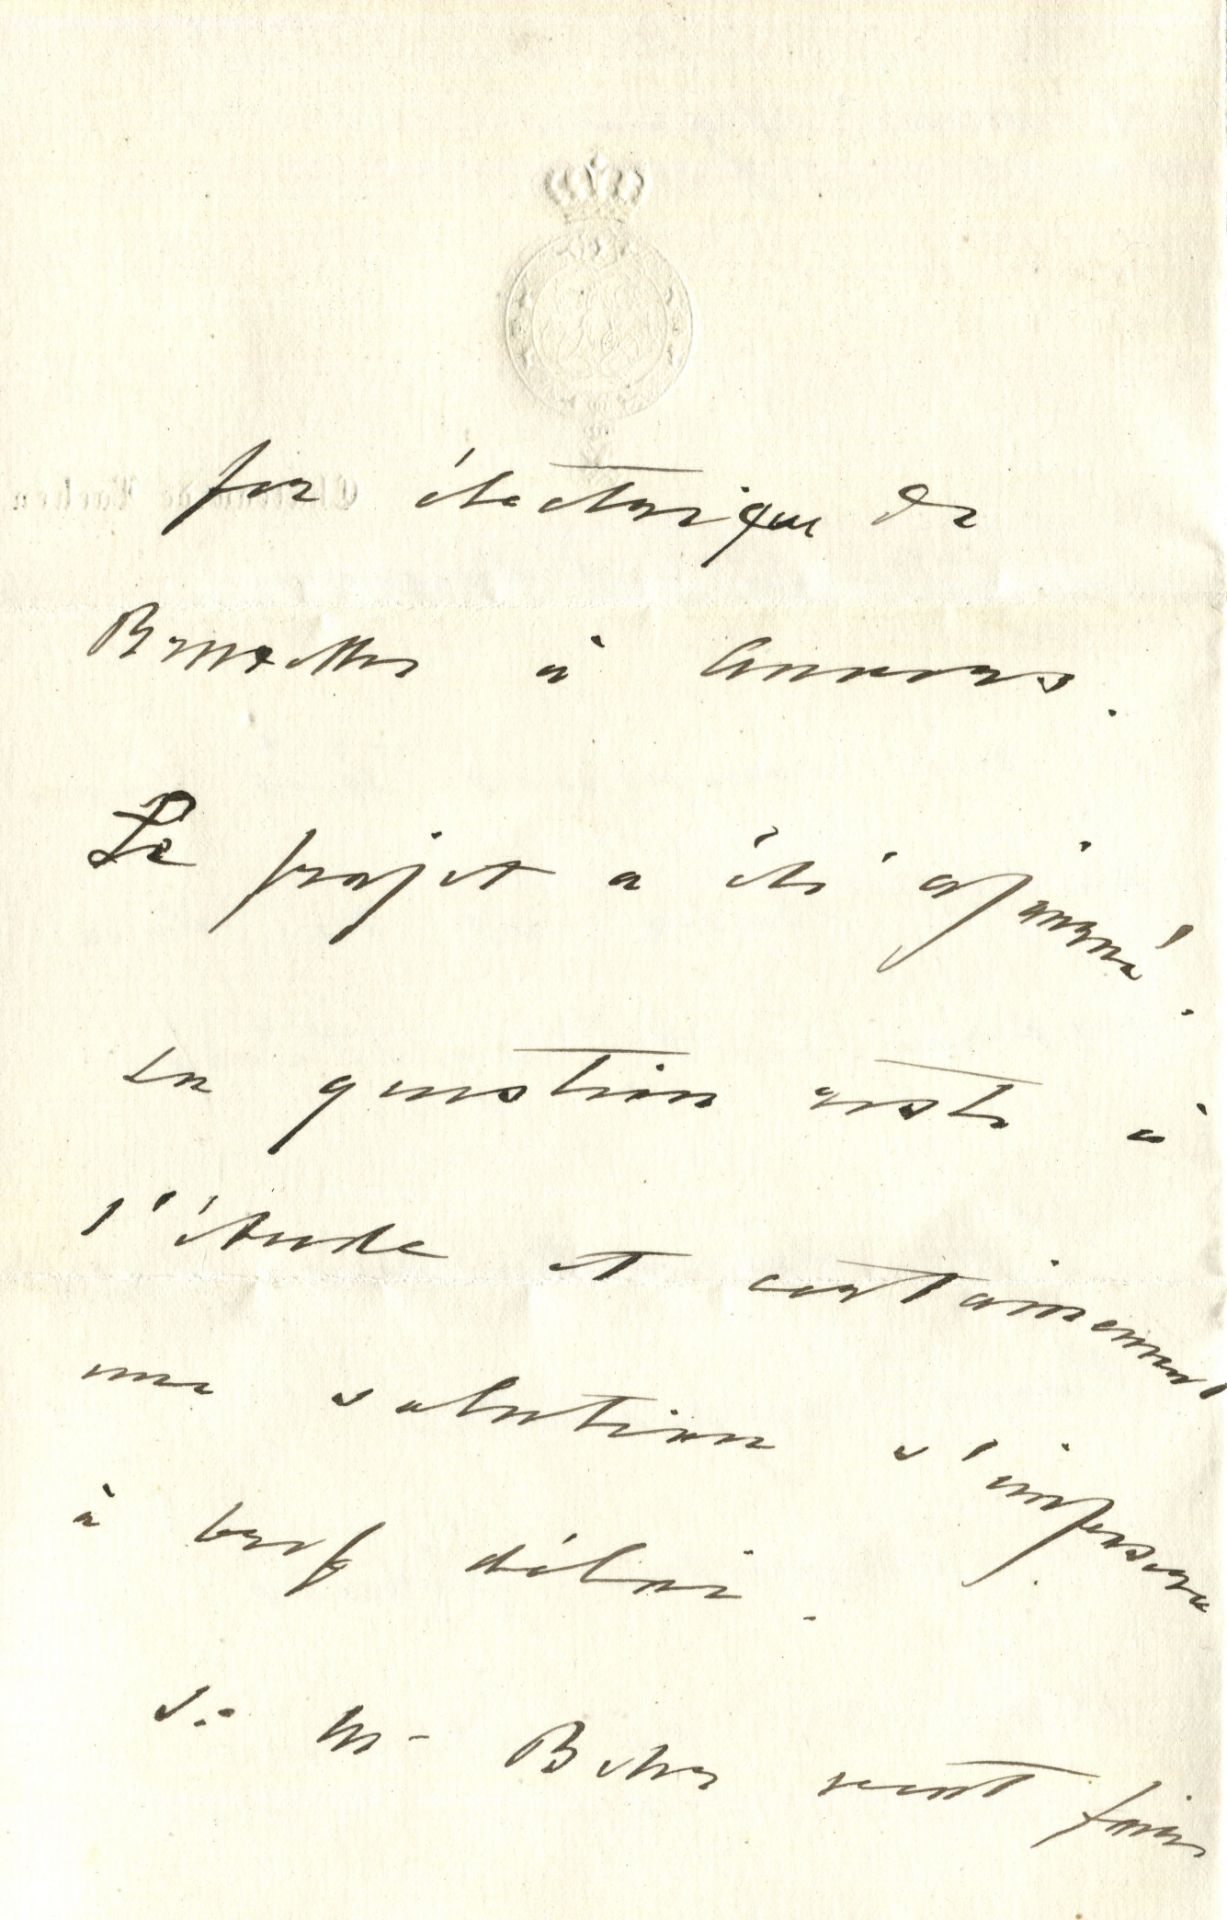 fer électrique de
Bruxelles à Anvers.
Le projet a été ajourné.
La question reste à
l'étude et certainement
une solution s'imposera
à bref délai.
Si Mr veut faire